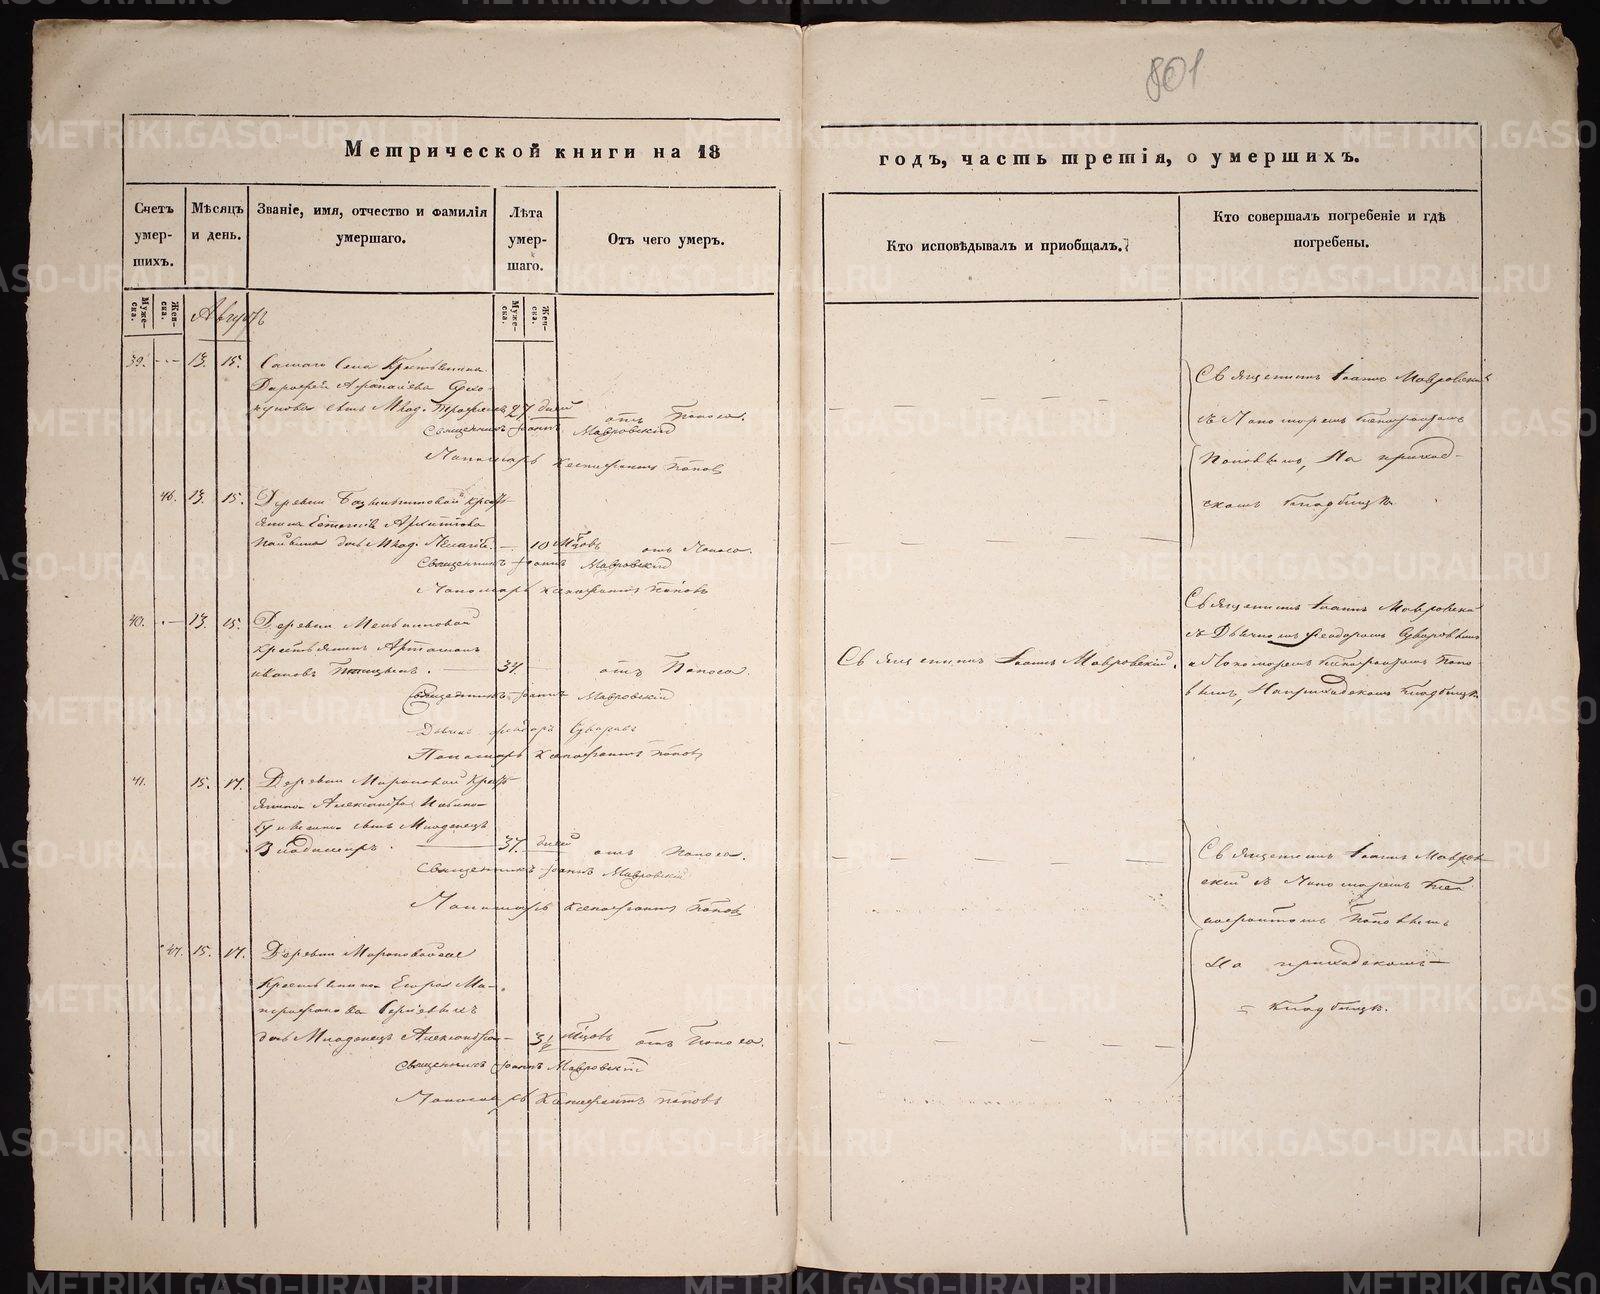 801
Метрической книги на 18
годъ, часть третія, о умершихъ.
Счетъ умер-шихъ.
Мѣсяцъ и день.
Званіе, имя, отчество и фамилія умершаго.
Лѣта умер-шаго.
Отъ чего умеръ.
Кто исповѣдывалъ и приобщалъ.
Кто совершалъ погребеніе и гдѣ погребены.
Муже-ска.
Жен-ска.
Августъ
Муже-ска.
Жен-ска.
39. 13. 15. Самаго Села Крестьянина
сынъ Млад. 27 дней отъ Поноса.
Священникъ Іоаннъ Мавровскій
Пономарь Ксенофонтъ Поповъ
Священникъ Іоаннъ Мавровскій
съ Пономаремъ Ксенофонтомъ
Поповымъ, На приход-
скомъ кладбищѣ.
46. 13. 15. Деревни
дочь Млад. 10 М-цовъ отъ Поноса.
Священникъ Іоаннъ Мавровскій
Пономарь Ксенофонтъ Поповъ
40. 13. 15. Деревни
крестьянинъ
Ивановъ 34. отъ Поноса.
Священникъ Іоаннъ Мавровскій
Дьячекъ Федоръ Суворовъ
Пономарь Ксенофонтъ Поповъ
Священникъ Іоаннъ Мавровскій.
Священникъ Іоаннъ Мавровскій
съ Дьячкомъ Феодоромъ Суворовымъ
и Пономаремъ Ксенофонтомъ Попо-
вымъ, На приходскомъ кладбищѣ.
41. 15. 17. Деревни Мироновой Крест-
янина Александра
сынъ Младенецъ
Владимиръ. 37. дней отъ Поноса.
Священникъ Іоаннъ Мавровскій
Пономарь Ксенофонтъ Поповъ
Священникъ Іоаннъ Мавров-
скій съ Пономаремъ Ксе-
нофонтомъ Поповымъ
На приходскомъ
кладбищѣ.
47. 15. 17. Деревни
Крестьянина Егора
дочь Младенецъ Александра 3½ М-цовъ отъ Поноса.
Священникъ Іоаннъ Мавровскій
Пономарь Ксенофонтъ Поповъ
METRIKI.GASO-URAL.RU